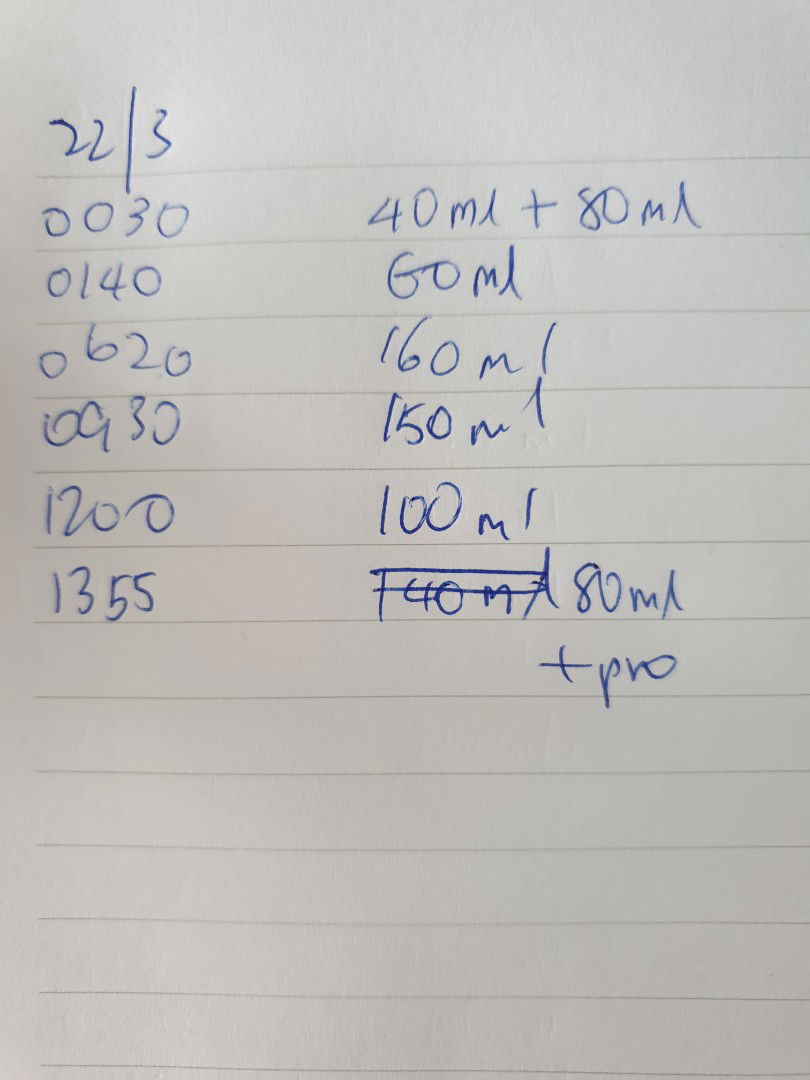 22/3
0030 40ml + 80ml
0140 60ml
0620 160ml
0930 150ml
1200 100ml
1355 140ml 80ml
+ pro